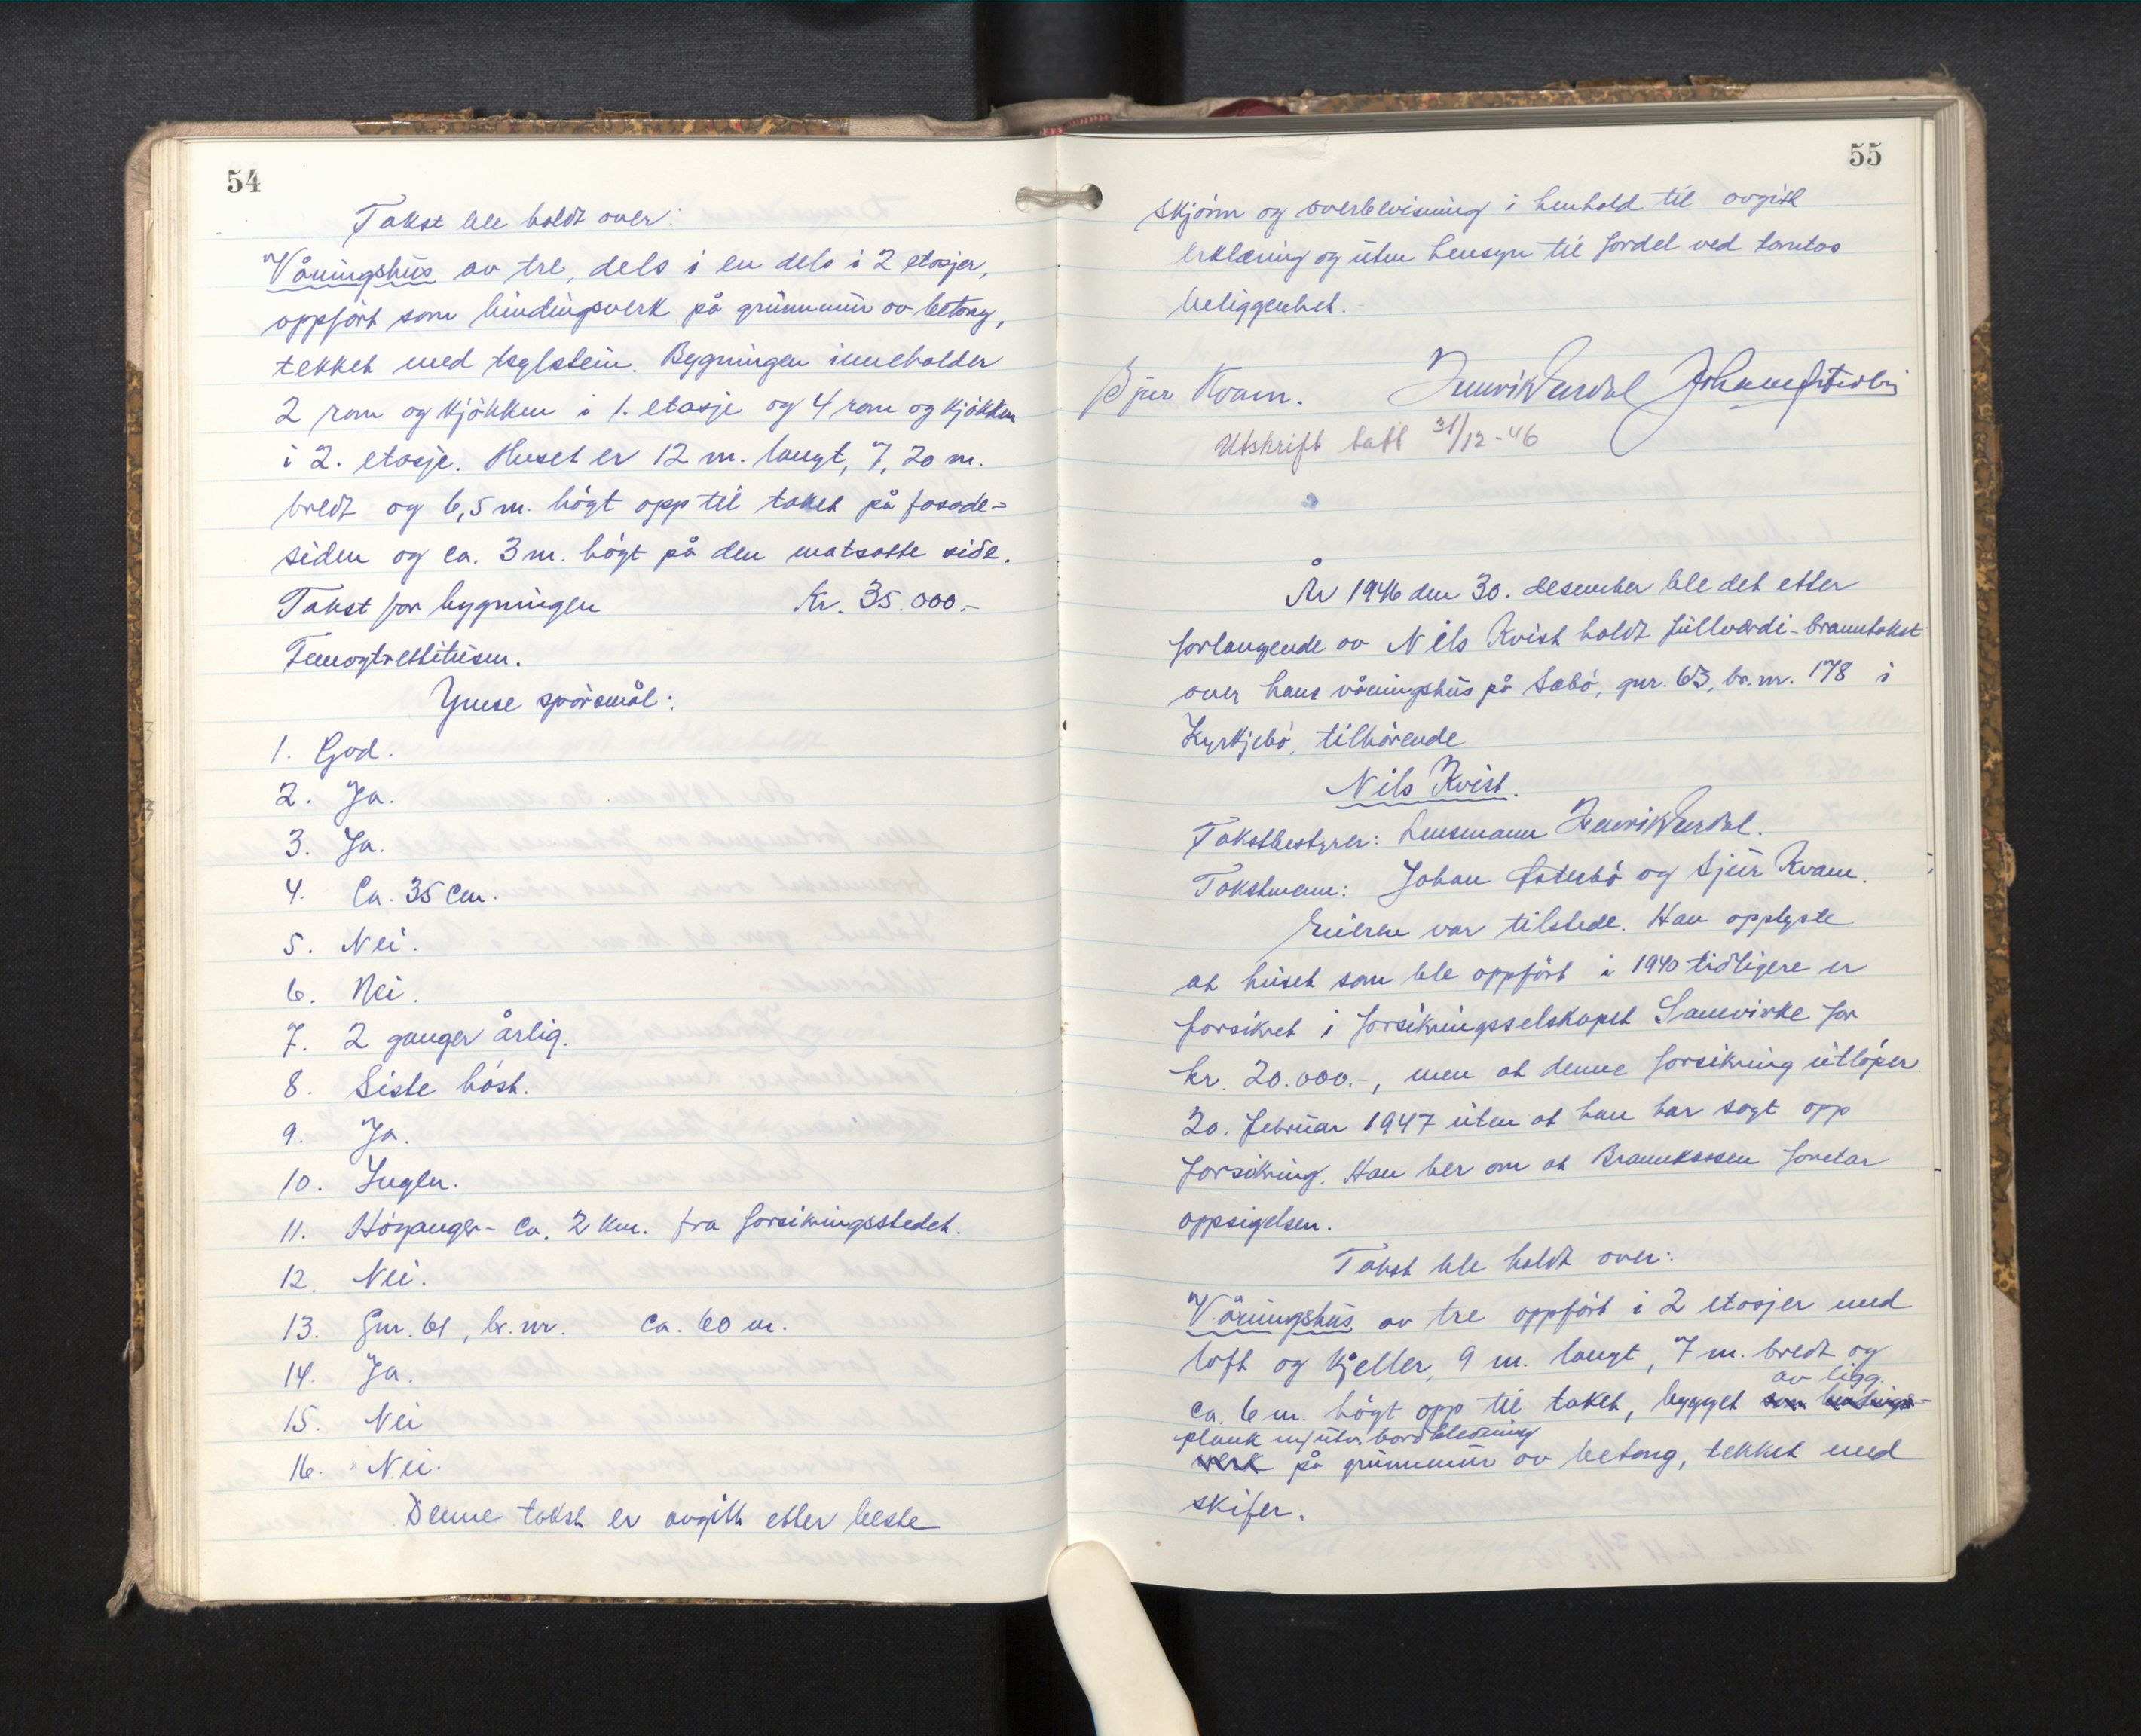 54
Takst ble holdt over:
Våningshus av tre, dels i en dels i 2 etasjer,
oppført som bindingsverk på grunnmur av betong,
tekket med teglstein. Bygningen inneholder
2 rom og kjøkken i 1. etasje og 4 rom og kjøkken
i 2. etasje. Huset er 12 m. langt, 7,20 m.
bredt og 6,5 m. høgt opp til taket på fasade-
siden og ca. 3 m. høgt på den motsatte side.
Takst for bygningen Kr. 35.000.-
Femogtrettitusen.
Ymse spørsmål:
1. God.
2. Ja.
3. Ja.
4. Ca. 35 cm.
5. Nei.
6. Nei.
7. 2 ganger årlig.
8. Siste høst.
9. Ja.
10. Ingen.
11. Høyanger - ca. 2 km. fra forsikringsstedet.
12. Nei.
13. Gnr. 61, br.nr. ca. 60 m.
14. Ja.
15. Nei
16. Nei.
Denne takst er avgitt etter beste
55
skjønn og overbevisning i henhold til avgitt
erklæring og uten hensyn til fordel ved tomtas
beliggenhet.
Sjur Kvam. Henrik Verdal Johan Østerbø
Utskrift tatt 31/12-46
År 1946 den 30. desember ble det etter
forlangende av Nils Kvist holdt fullverdi-branntakst
over hans våningshus på Sæbø, gnr. 63, br.nr. 178 i
Kyrkjebø, tilhørende
Nils Kvist.
Takstbestyrer: Lensmann Henrik Verdal.
Takstmenn: Johan Østerbø og Sjur Kvam.
Eieren var tilstede. Han opplyste
at huset som ble oppført i 1940 tidligere er
forsikret i forsikringsselskapet Samvirke for
kr. 20.000.-, men at denne forsikring utløper
20. februar 1947 uten at han har sagt opp
forsikring. Han ber om at Brannkassen foretar
oppsigelsen.
Takst ble holdt over:
Våningshus av tre oppført i 2 etasjer med
loft og kjeller, 9 m. langt, 7 m. bredt og
av ligg.
ca. 6 m. høgt opp til taket, bygget som bindings-
plank m/utv. bordkledning
verk på grunnmur av betong, tekket med
skifer.